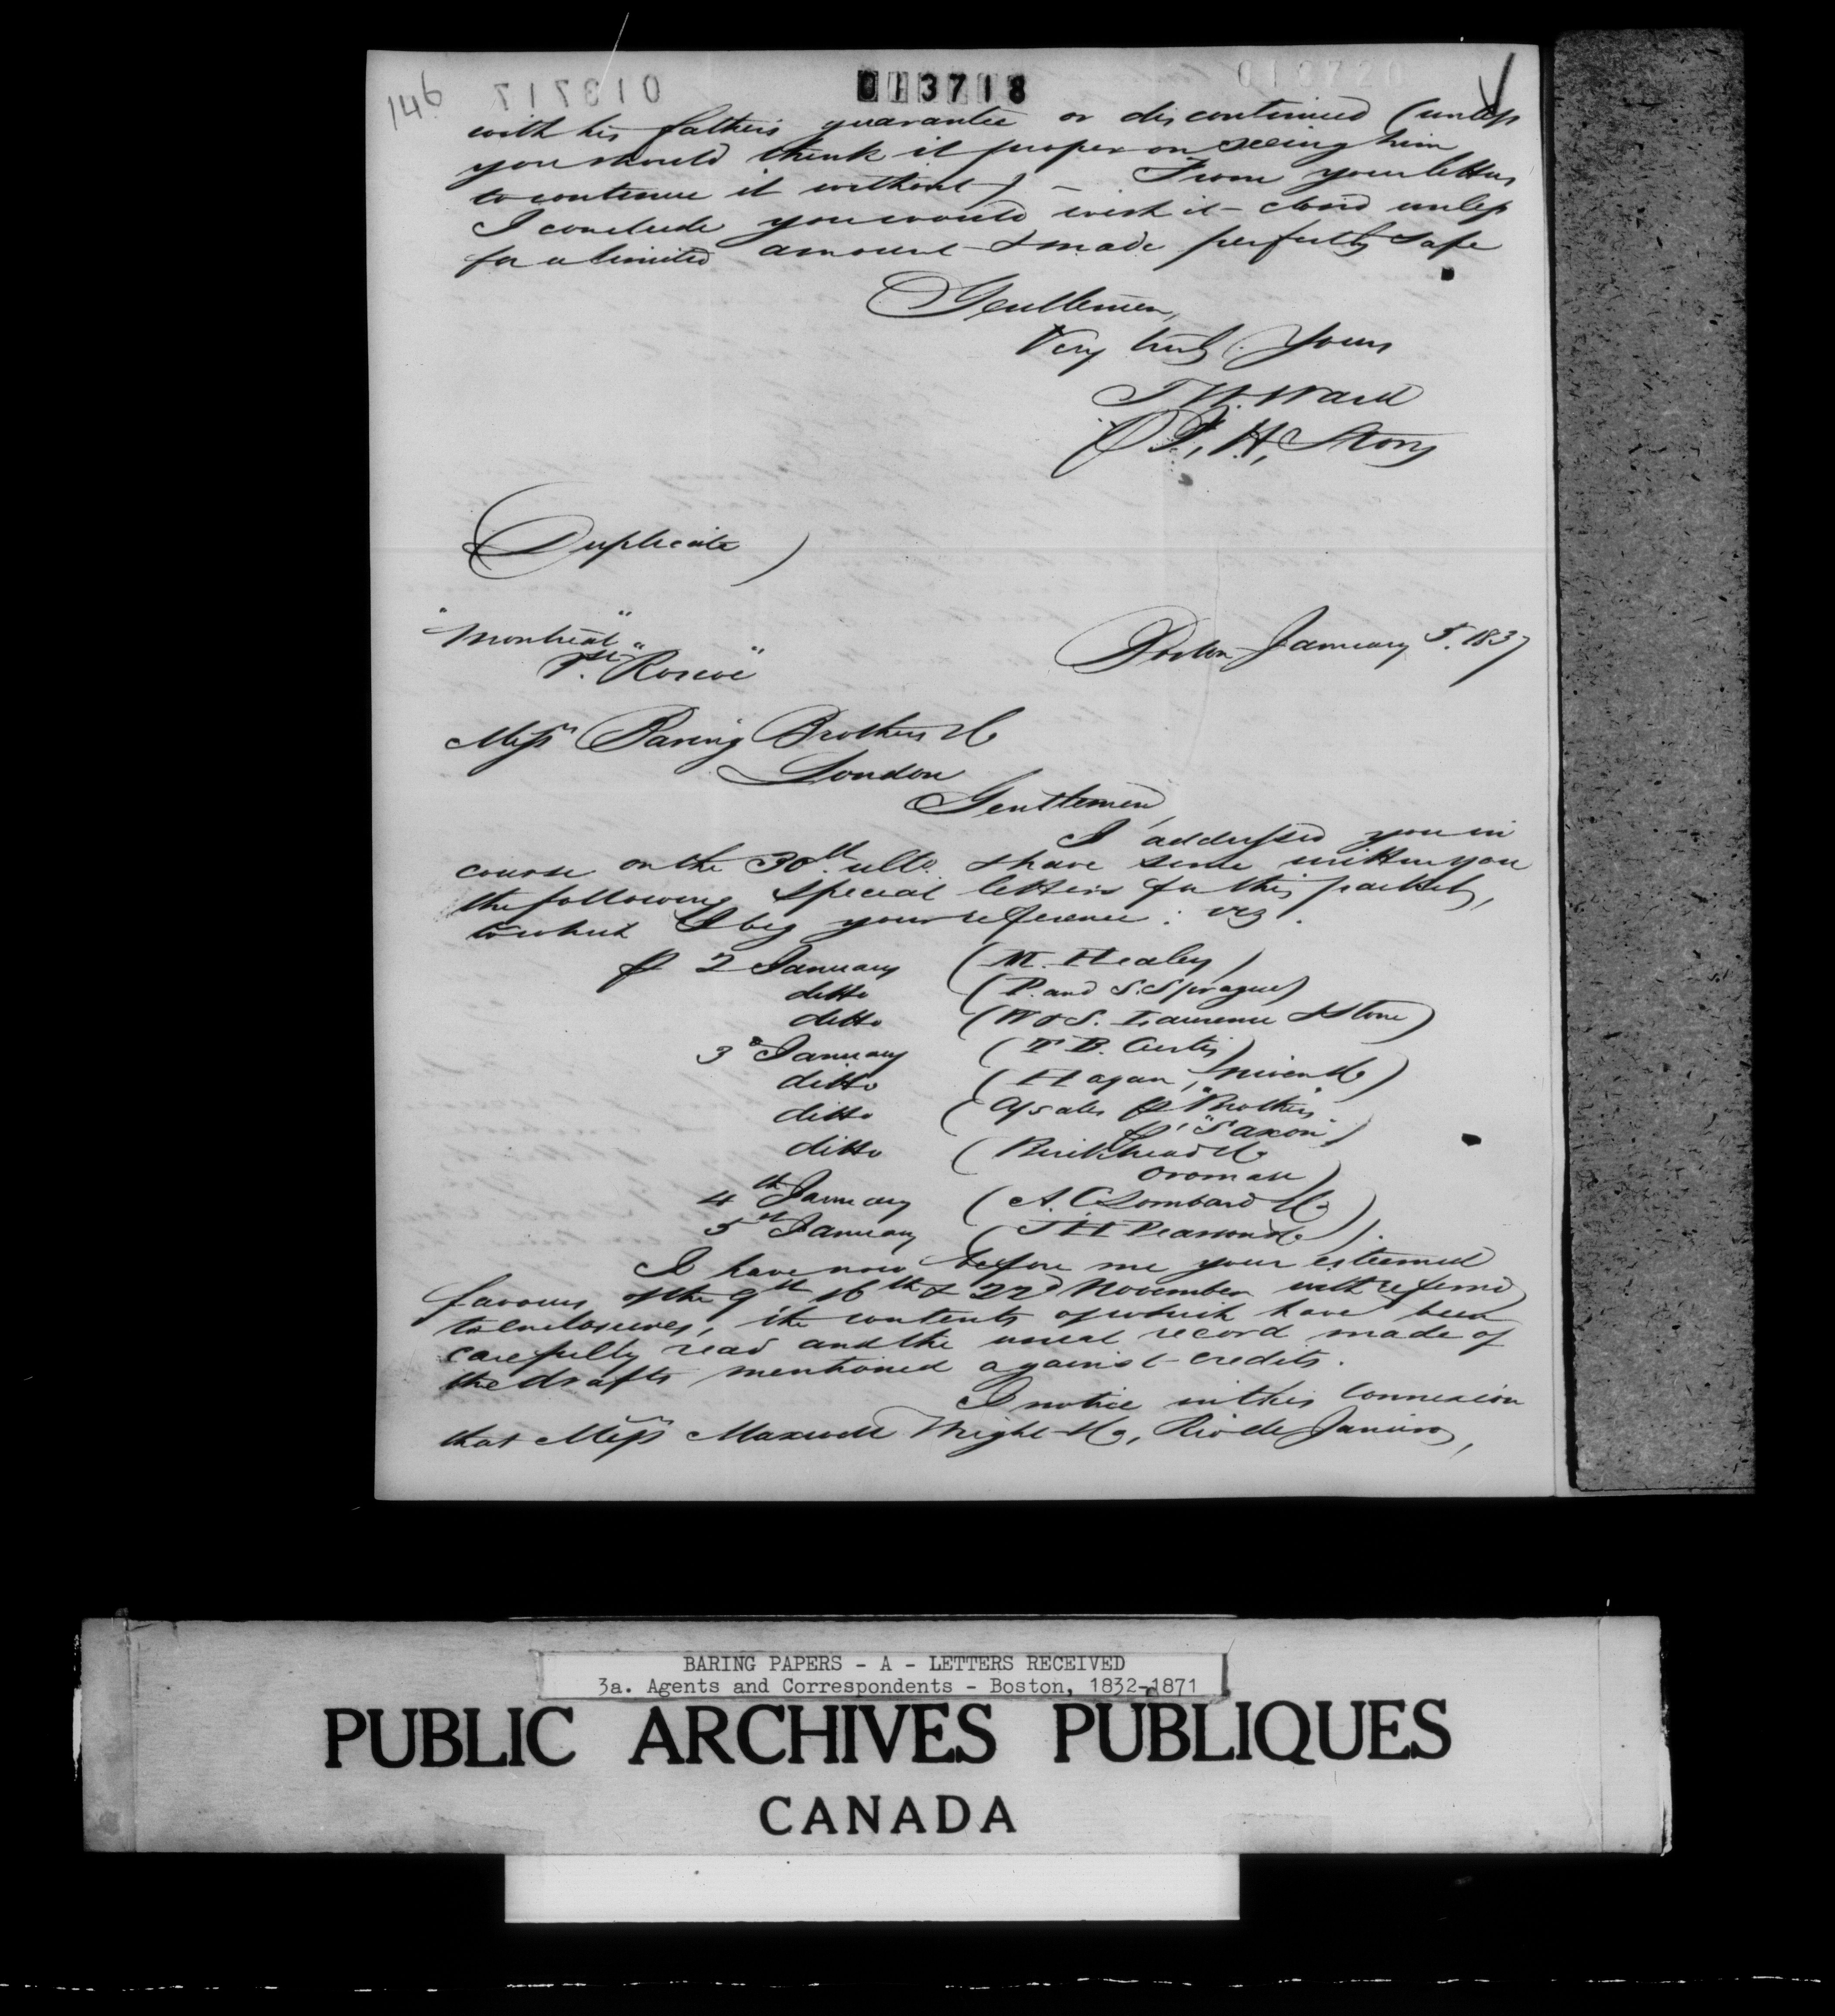 146
013718
with his father's guarantee or discontinued (unless
you should think it proper on seeing him
to continue it without) – From your letters
I conclude you would wish it closed unless
for a limited amount & made perfectly safe
Gentlemen,
Very truly Yours
T W. Ward
P. H. Story
(Duplicate)
"Montreal"
"Roscoe"
Boston January 5. 1837
Messrs Baring Brothers & Co
London
Gentlemen,
I addressed you in
course on the 30th ulto. & have since written you
the following special letters for this packet,
to which I beg your reference: viz.
2 January (M. Healey)
ditto (P. and S. Sprague)
ditto (W & S. Lawrence & Stone)
3d January (T B. Curtis)
ditto (Hagan, Niven & Co)
ditto (A/sales "Brothers"
"Saxon")
ditto (Birckhead & Co
4th January (A. C Lombard & Co)
5th January (J H Pearson & Co).
I have now before me your esteemed
favours of the 9th 16th & 22d November with referred
to enclosures, the contents of which have been
carefully read and the usual record made of
the drafts mentioned against credits.
I notice in this connexion
that Messrs Maxwell Wright & Co, Rio de Janeiro,
BARING PAPERS - A - LETTERS RECEIVED
3a. Agents and Correspondents - Boston, 1832-1871
PUBLIC ARCHIVES PUBLIQUES
CANADA